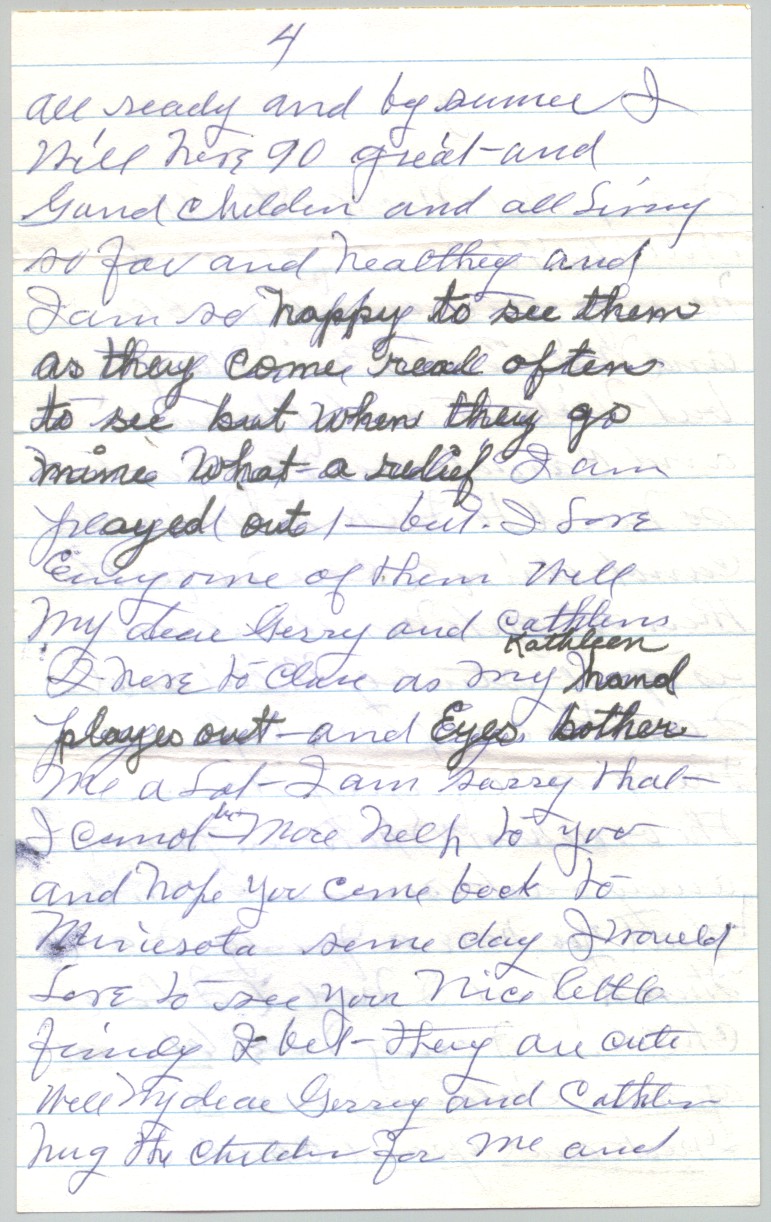 4
all ready and by sumer I
Will have 90 great and
Grand Childen and all living
so far and healthey and
I am so happy to see them
as they come real often
to see but when they go
mine What a relief I am
played out but I Love
Every one of them Well
My dear Gerry and Cathlens
Kathleen
I have to close as my hand
playes out and Eyes bother
Me a Lot I am sarry that
I cannot be More help to you
and hope you come back to
Minnesota some day I would
Love to see your Nice little
fimily I bet They are cute
Well My dear Gerry and Cathlen
hug the children for me and